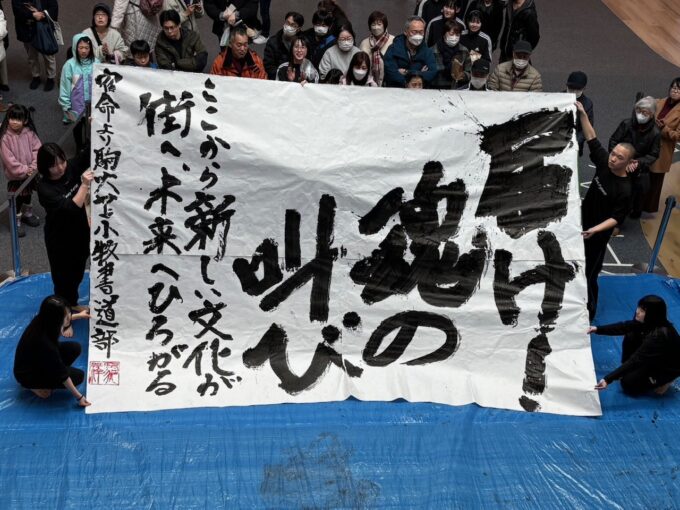 届け!
魂の
叫び
ここから新しい文化が
街へ、未来へひろがる
宿命より駒大苫小牧書道部